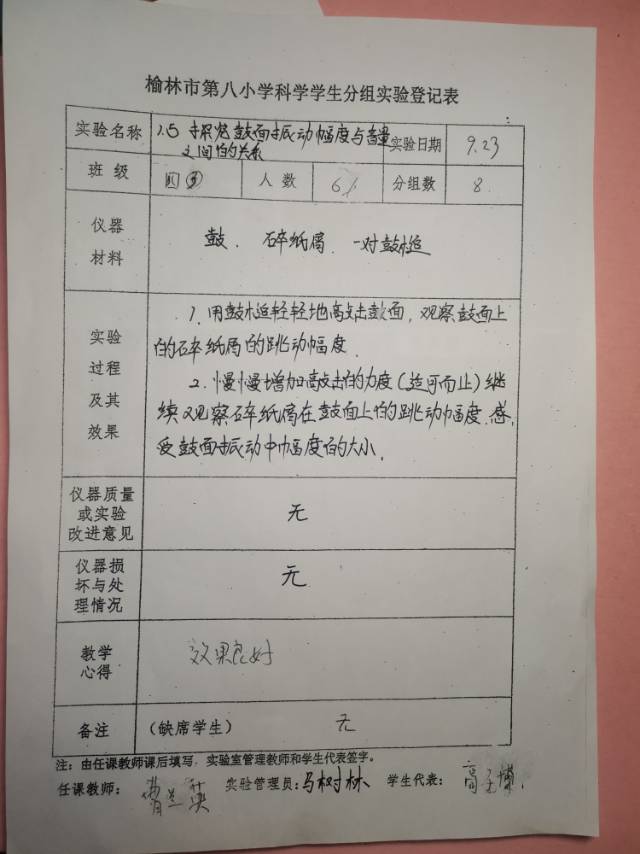 榆林市第八小学科学学生分组实验登记表
实验名称 1.5 探究鼓面振动幅度与音量之间的关系 实验日期 9.23
班级 四 人数 61 分组数 8
仪器材料 鼓、碎纸屑、一对鼓槌
实验过程及其效果
1. 用鼓槌轻轻地敲击鼓面,观察鼓面上
的碎纸屑的跳动幅度.
2. 慢慢增加敲击的力度(适可而止)继
续观察碎纸屑在鼓面上的跳动幅度.感
受鼓面振动中幅度的大小.
仪器质量或实验改进意见 无
仪器损坏与处理情况 无
教学心得 效果良好
备注 (缺席学生) 无
注:由任课教师课后填写,实验室管理教师和学生代表签字。
任课教师: 实验管理员:马树林 学生代表: